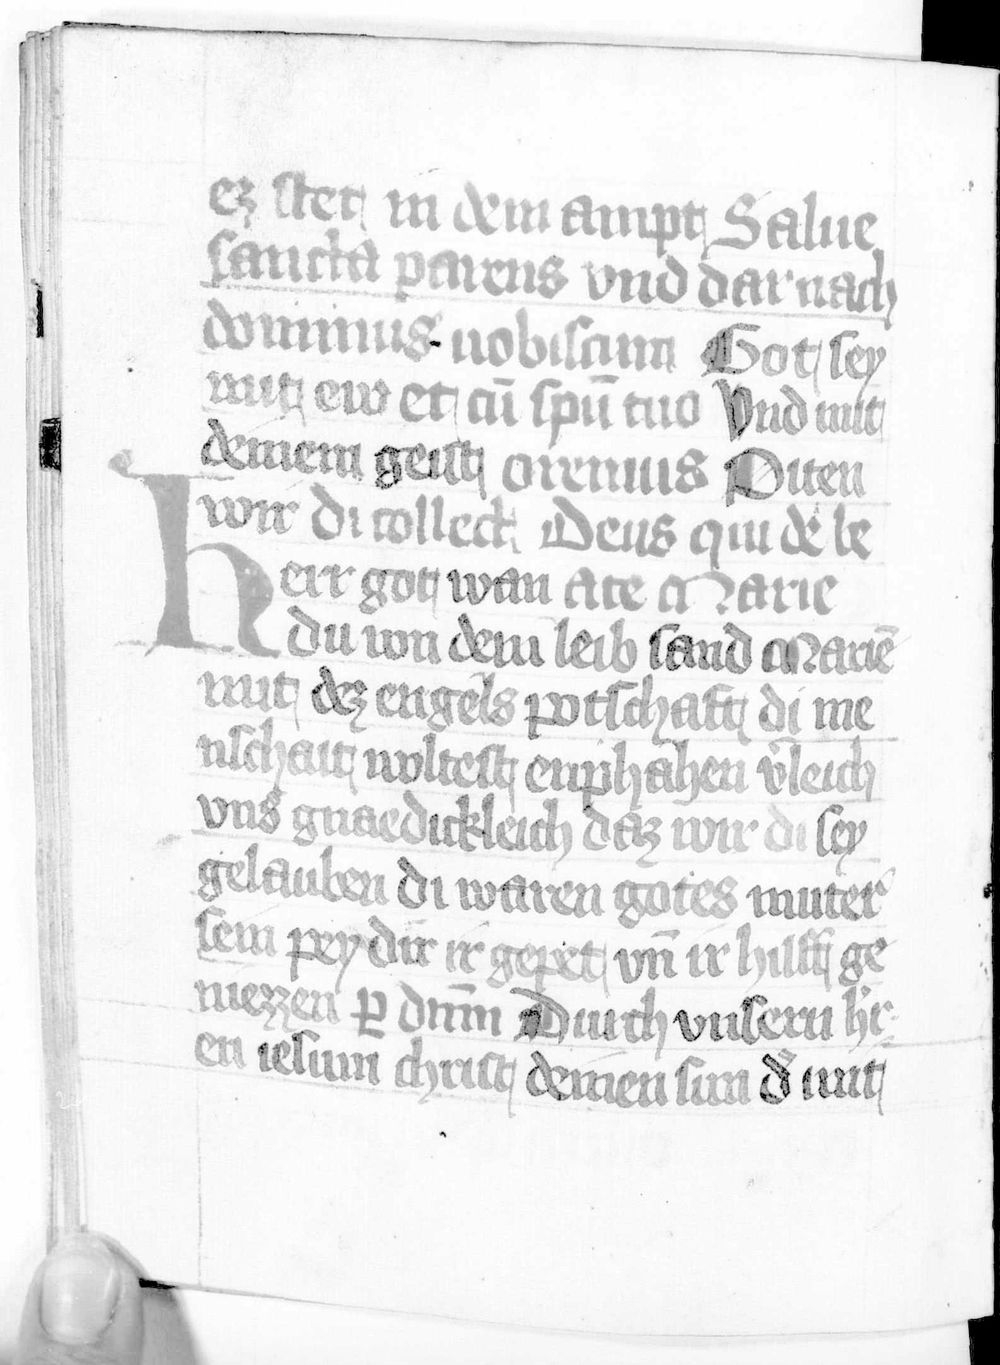 ez stet in dem ampt Salue
sancta parens vnd dar nach
dominus uobiscum Got sey
mit ew et cū spū tuo Vnd mit
deinem geist oremus Piten
wir di collect Deus qui de be
Herr got wan ate Marie
du von dem leib sand Mariē
mit dez engels potschaft di me
nschait woltest enphahen v̓leich
vns gnaedickleich daz wir di sey
gelauben di waren gotes muter
sein pey dir ir gepet vn̄ ir hilff ge
niezzen ꝑ dn̄m Durch vnsern hr̓
en iesum christ deinen sun d̓ mit